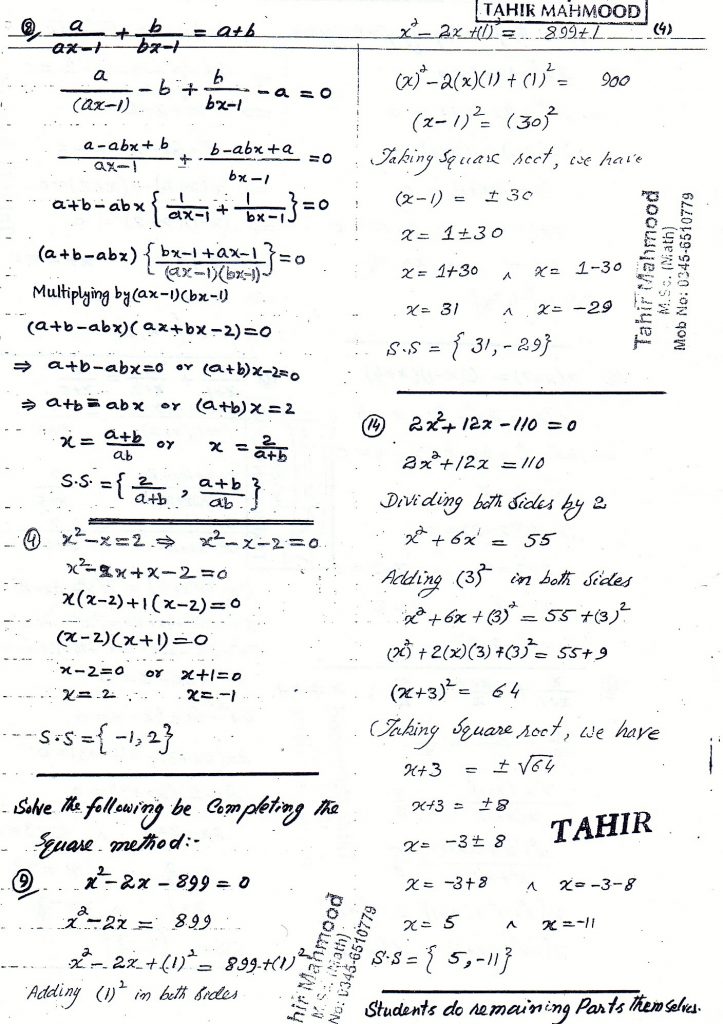 ⑧ a/(ax-1) + b/(bx-1) = a+b
a/(ax-1) - b + b/(bx-1) - a = 0
(a-abx+b)/(ax-1) + (b-abx+a)/(bx-1) = 0
a+b-abx { 1/(ax-1) + 1/(bx-1) } = 0
(a+b-abx) { (bx-1+ax-1)/((ax-1)(bx-1)) } = 0
Multiplying by (ax-1)(bx-1)
(a+b-abx)(ax+bx-2)=0
⇒ a+b-abx=0 or (a+b)x-2=0
⇒ a+b=abx or (a+b)x=2
x = (a+b)/ab or x = 2/(a+b)
S.S. = { 2/(a+b) , (a+b)/ab }
④ x²-x=2 ⇒ x²-x-2=0
x²-2x+x-2=0
x(x-2)+1(x-2)=0
(x-2)(x+1)=0
x-2=0 or x+1=0
x=2 x=-1
S.S={-1,2}
Solve the following be Completing the
Square method:-
⑨ x²-2x-899=0
x²-2x = 899
x²-2x+(1)² = 899+(1)²
Adding (1)² in both sides
TAHIR MAHMOOD
x²-2x+(1)² = 899+1 (4)
(x)²-2(x)(1)+(1)² = 900
(x-1)² = (30)²
Taking Square root, we have
(x-1) = ±30
x = 1±30
x = 1+30 ∧ x = 1-30
x = 31 ∧ x = -29
S.S = {31,-29}
Tahir Mahmood
M.Sc. (Math)
Mob No: 0345-6510779
⑭ 2x²+12x-110=0
2x²+12x=110
Dividing both Sides by 2
x²+6x = 55
Adding (3)² in both Sides
x²+6x+(3)² = 55+(3)²
(x²)+2(x)(3)+(3)² = 55+9
(x+3)² = 64
(Taking Square root, we have
x+3 = ±√64
x+3 = ±8
x = -3±8
TAHIR
x = -3+8 ∧ x=-3-8
x = 5 ∧ x=-11
S.S = {5,-11}
hir Mahmood
M.Sc. (Math)
No: 0345-6510779
Students do remaining Parts themselves.